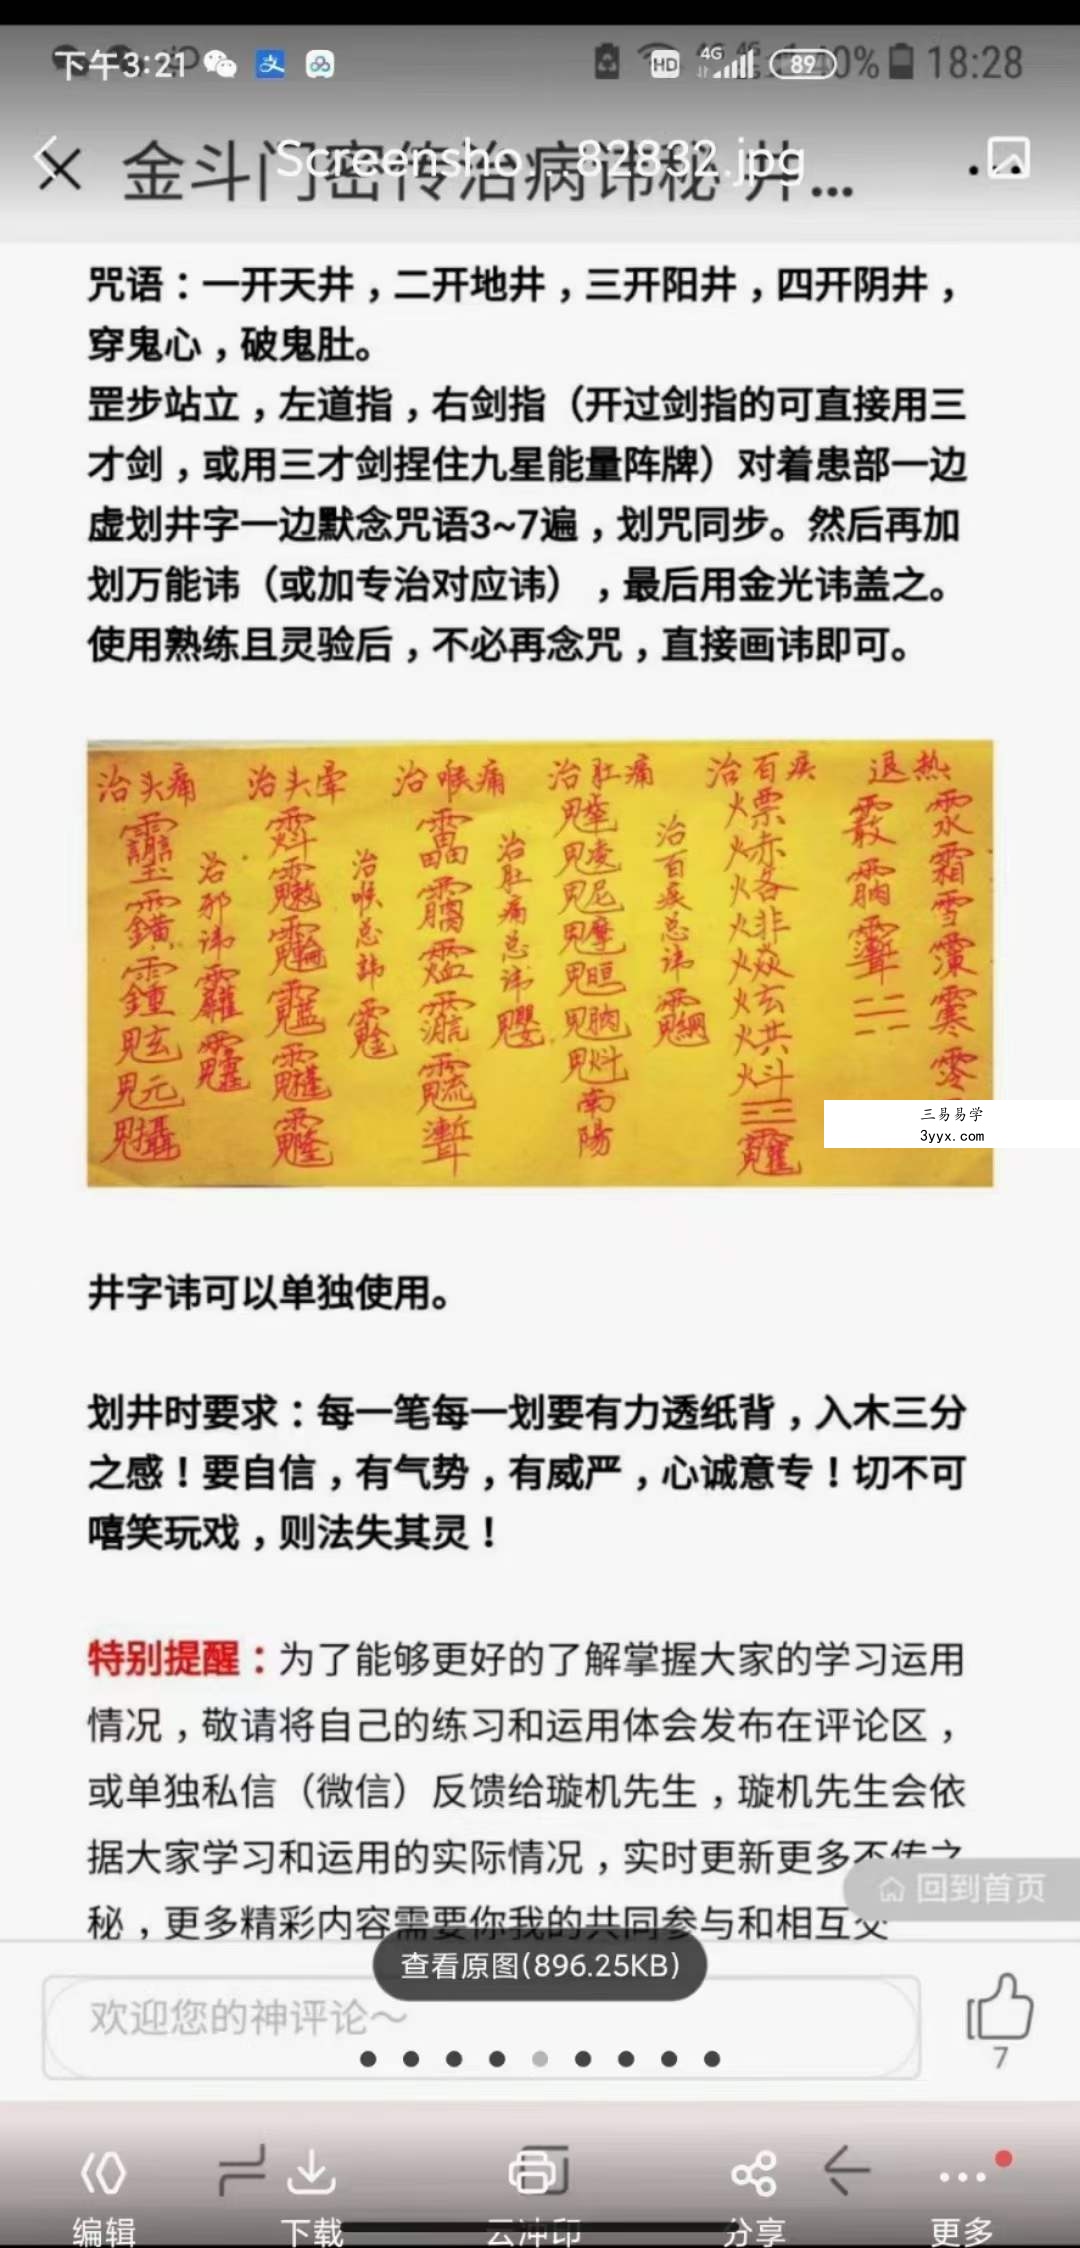 下午3:21
HD 4G 89 40% 18:28
金斗门密传治病讳秘 井...
Screensho...82832.jpg
咒语：一开天井，二开地井，三开阳井，四开阴井，
穿鬼心，破鬼肚。
罡步站立，左道指，右剑指（开过剑指的可直接用三
才剑，或用三才剑捏住九星能量阵牌）对着患部一边
虚划井字一边默念咒语3~7遍，划咒同步。然后再加
划万能讳（或加专治对应讳），最后用金光讳盖之。
使用熟练且灵验后，不必再念咒，直接画讳即可。
治头痛
治邪讳
治头晕
治喉总讳
治喉痛
治肚痛总讳
治肚痛
南陽
治百疾总讳
治百疾
退热
三易易学
3yyx.com
井字讳可以单独使用。
划井时要求：每一笔每一划要有力透纸背，入木三分
之感！要自信，有气势，有威严，心诚意专！切不可
嘻笑玩戏，则法失其灵！
特别提醒：为了能够更好的了解掌握大家的学习运用
情况，敬请将自己的练习和运用体会发布在评论区，
或单独私信（微信）反馈给璇机先生，璇机先生会依
据大家学习和运用的实际情况，实时更新更多不传之
秘，更多精彩内容需要你我的共同参与和相互交
回到首页
查看原图(896.25KB)
欢迎您的神评论～
7
编辑 下载 云冲印 分享 更多